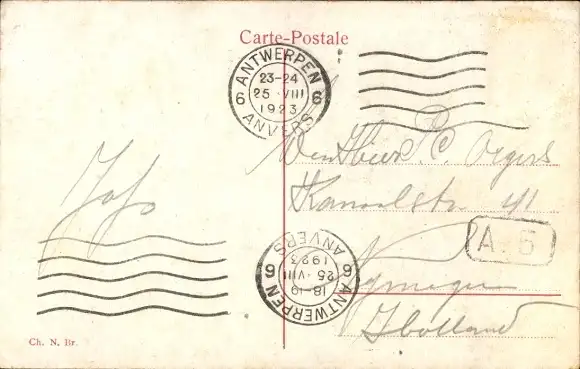 Carte-Postale
ANTWERPEN
6 23-24 6
25 VIII
1923
ANVERS
Den Heer P.C.
Kanaalstr 41
A. 5
Nymegen
Holland
ANTWERPEN
6 18-19 6
25 VIII
1923
ANVERS
Ch. N. Br.